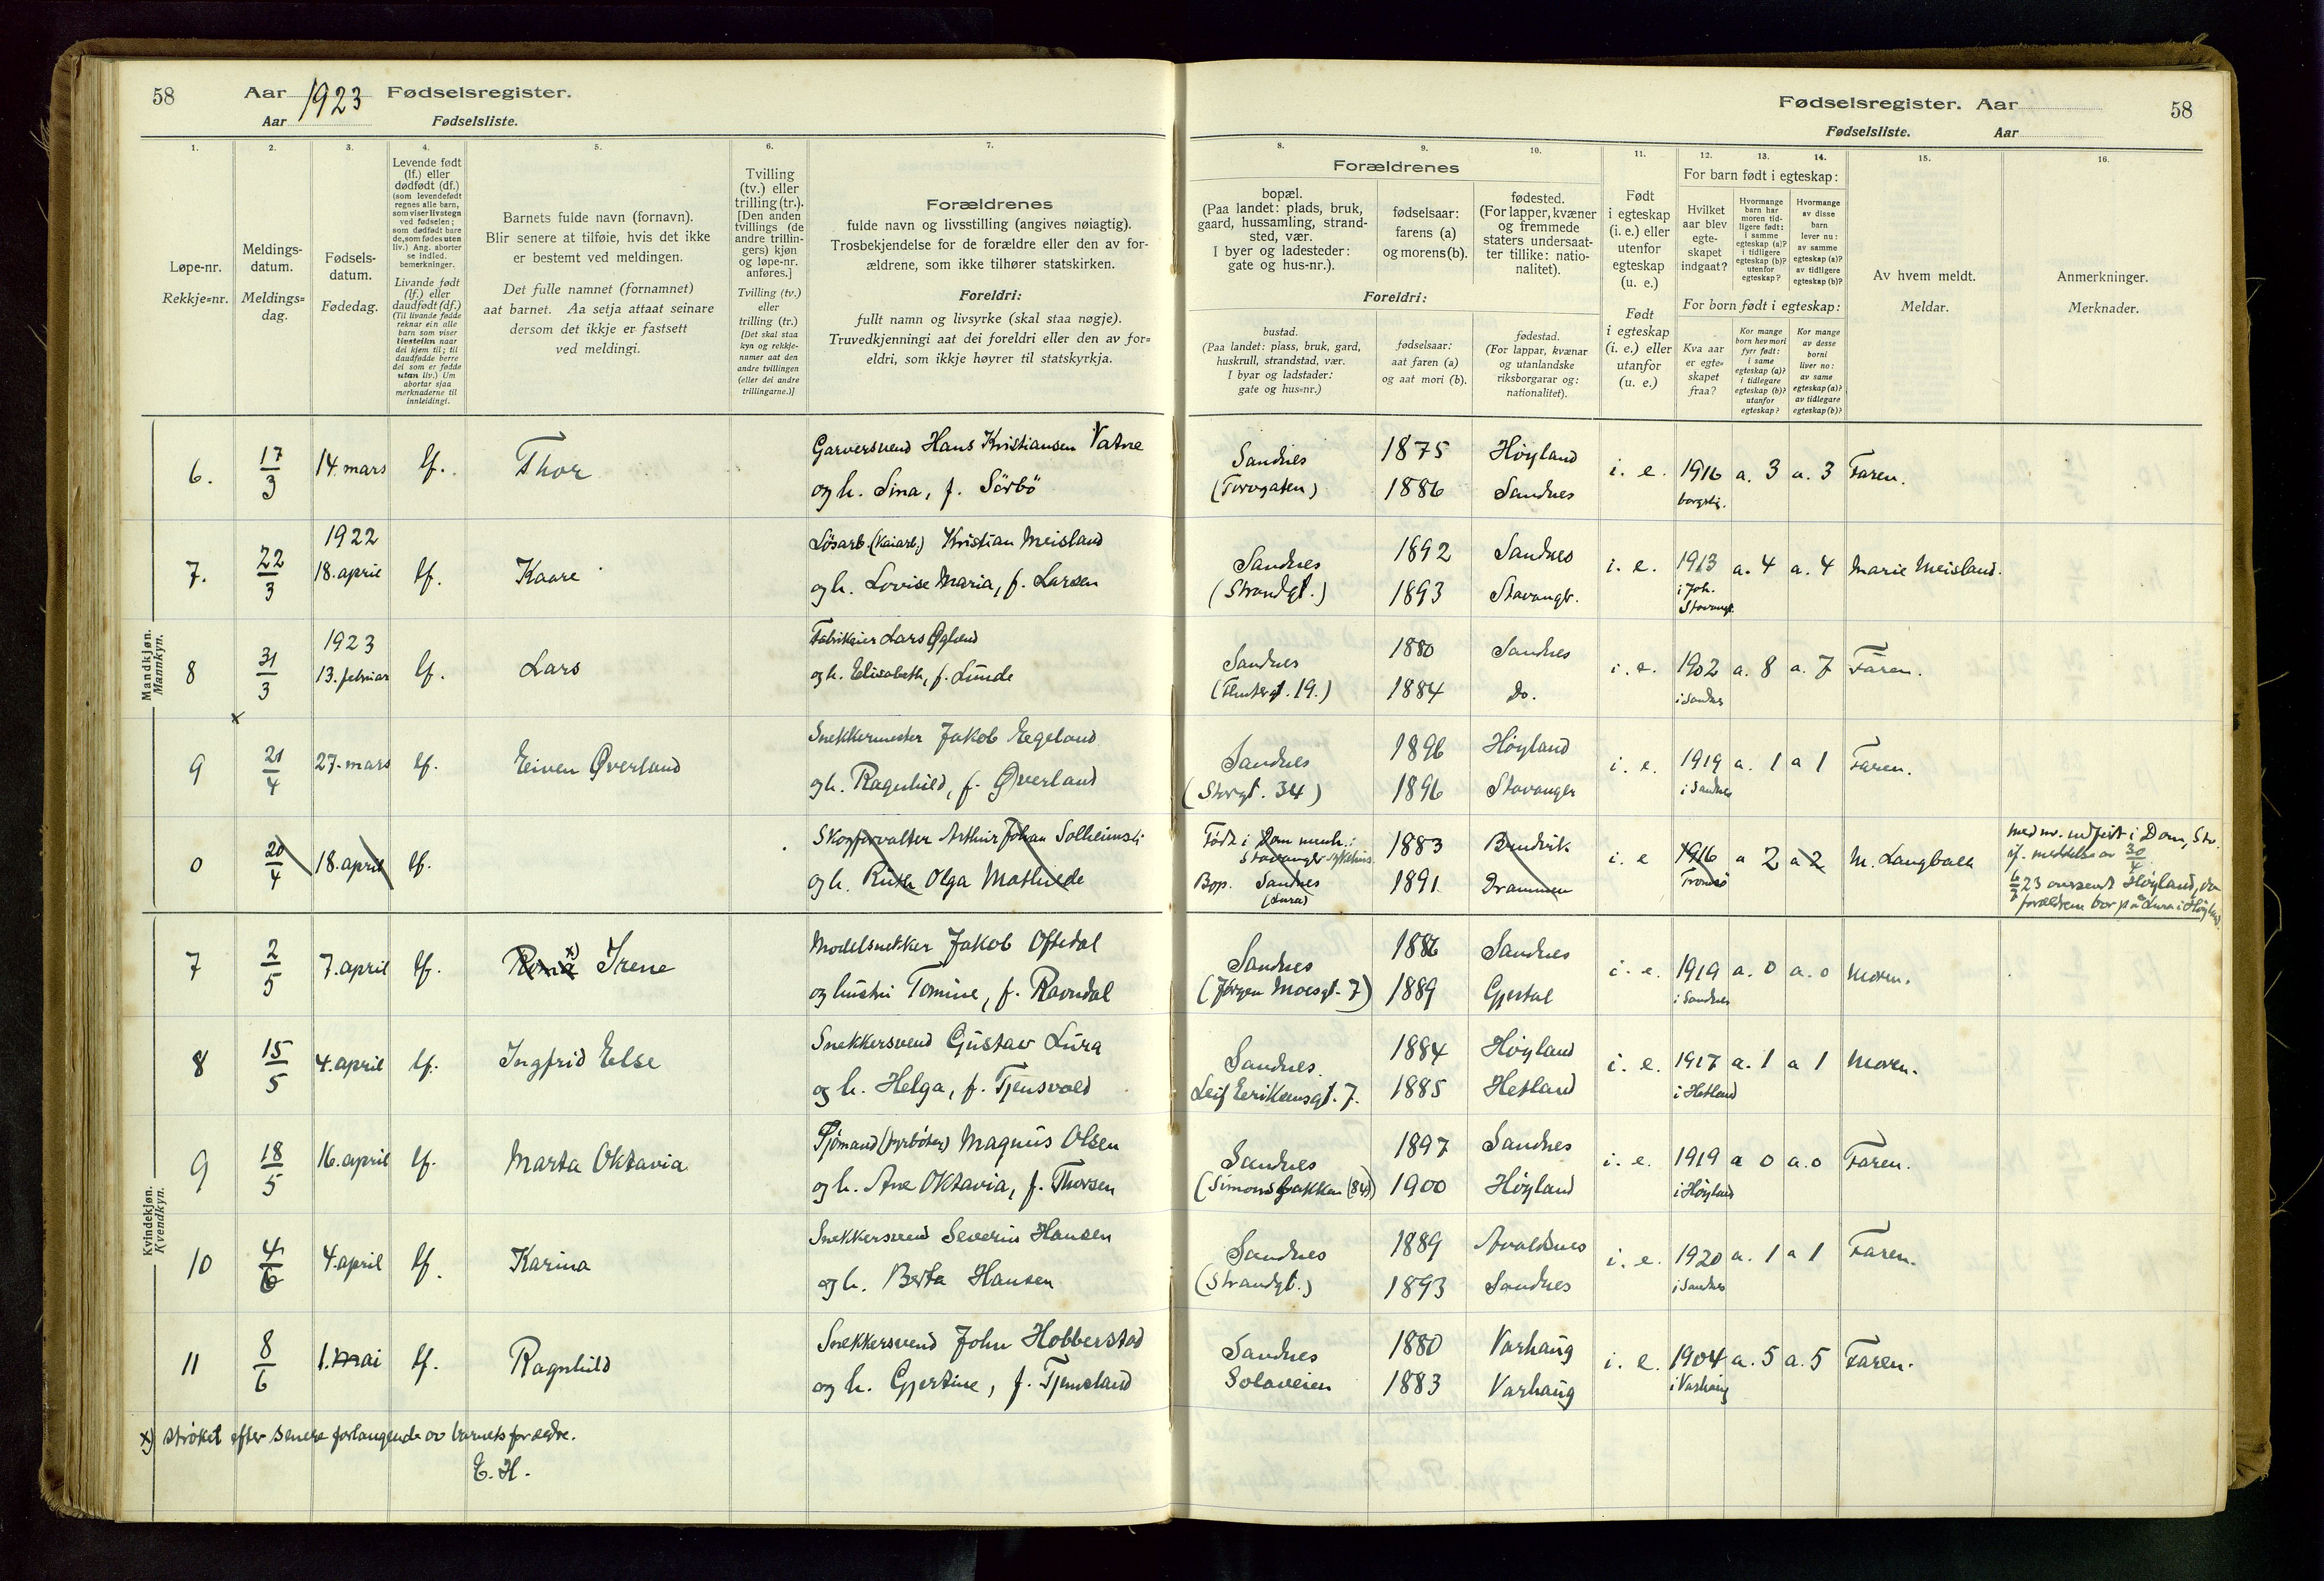 58
Aar 1923 Fødselsregister.
Aar Fødselsliste.
1.
2.
3.
4.
5.
6.
7.
Løpe-nr.
Rekkje=nr.
Meldings-
datum.
Meldings=
dag.
Fødsels-
datum.
Fødedag.
Levende født
(lf.) eller
dødfødt (df.)
(som levendefødt
regnes alle barn,
som viser livstegn
ved fødselen;
som dødfødt bare
de, som fødes uten
liv.) Ang. aborter
se indled.
bemerkninger.
Livande født
(lf.) eller
daudfødt (df.)
(Til livande fødde
reknar ein alle
born som viser
livsteikn naar
dei kjem til; til
daudfødde berre
dei som er fødde
utan liv.) Um
abortar sjaa
merknaderne til
innleidingi.
Barnets fulde navn (fornavn).
Blir senere at tilføie, hvis det ikke
er bestemt ved meldingen.
Det fulle namnet (fornamnet)
aat barnet. Aa setja attaat seinare
dersom det ikkje er fastsett
ved meldingi.
Tvilling
(tv.) eller
trilling (tr.).
[Den anden
tvillings (de
andre trillin-
gers) kjøn
og løpe-nr.
anføres.]
Tvilling (tv.)
eller
trilling (tr.)
[Det skal staa
kyn og rekkje-
numer aat den
andre tvillingen
(eller dei andre
trillingarne.)]
Forældrenes
fulde navn og livsstilling (angives nøiagtig).
Trosbekjendelse for de forældre eller den av for-
ældrene, som ikke tilhører statskirken.
Foreldri:
fullt namn og livsyrke (skal staa nøgje).
Truvedkjenningi aat dei foreldri eller den av for=
eldri, som ikkje høyrer til statskyrkja.
Mandkjøn.
Mannkyn.
6. 17/3 14. mars lf. Thor
Garversvend Hans Kristiansen Vatne
og h. Sina, f. Sörbö
7. 22/3 1922
18. april lf. Kaare
Løsarb. (Kaiarb.) Kristian Meisland
og h. Lovise Maria, f. Larsen
8 31/3 1923
13. februar lf. Lars
Fabrikeier Lars Øglænd
og h. Elisabeth, f. Lunde
x
9 21/4 27. mars lf. Eiven Øverland
Snekkermester Jakob Eegeland
og h. Ragnhild, f. Øverland
0 20/4 18. april lf.
Skogforvalter Arthur Johan Solheimsli
og h. Ruth Olga Mathilde
Kvindekjøn.
Kvendkyn.
7 2/5 7. april lf. x) Irene
Modelsnekker Jakob Oftedal
og hustru Tomine, f. Ravndal
8 15/5 4. april lf. Ingfrid Else
Snekkersvend Gustav Lura
og h. Helga, f. Tjensvold
9 18/5 16. april lf. Marta Oktavia
Sjømand (fyrbøter) Magnus Olsen
og h. Ane Oktavia, f. Thorsen
10 4/6 4. april lf. Karina
Snekkersvend Severin Hansen
og h. Berta Hansen
11 8/6 1. mai lf. Ragnhild
Snekkersvend John Hobberstad
og h. Gjertine, f. Tjemsland
x) strøket efter senere forlangende av barnets forældre.
E. H.
Fødselsregister. Aar
Fødselsliste. Aar
58
8.
9.
10.
11.
12.
13.
14.
15.
16.
Forældrenes
bopæl.
(Paa landet: plads, bruk,
gaard, hussamling, strand-
sted, vær.
I byer og ladesteder:
gate og hus-nr.).
fødselsaar:
farens (a)
og morens (b).
fødested.
(For lapper, kvæner
og fremmede
staters undersaat-
ter tillike: natio-
nalitet).
Foreldri:
bustad.
(Paa landet: plass, bruk, gard,
huskrull, strandstad, vær.
I byar og ladstader:
gate og hus=nr.)
fødselsaar:
aat faren (a)
og aat mori (b).
fødestad.
(For lappar, kvænar
og utanlandske
riksborgarar og:
nationalitet).
Født
i egteskap
(i. e.) eller
utenfor
egteskap
(u. e.)
Født
i egteskap
(i. e.) eller
utanfor
(u. e.)
For barn født i egteskap:
Hvilket
aar blev
egte-
skapet
indgaat?
Hvormange
barn har
moren tid-
ligere født:
i samme
egteskap (a)?
i tidligere
egteskap (b)?
utenfor
egteskap?
Hvormange
av disse
barn
lever nu:
av samme
egteskap (a)?
av tidligere
egteskap (b)?
For born født i egteskap:
Kva aar
er egte=
skapet
fraa?
Kor mange
born hev mori
fyrr født:
i same
egteskap (a)?
i tidlegare
egteskap (b)?
utanfor
egteskap?
Kor mange
av desse
borni
liver no:
av same
egteskap (a)?
av tidlegare
egteskap (b)?
Av hvem meldt.
Meldar.
Anmerkninger.
Merknader.
Sandnes 1875 Høyland i. e. 1916 a. 3 a. 3 Faren.
(Torvgaten) 1886 Sandnes borgerlig.
Sandnes 1892 Sandnes i. e. 1913 a. 4 a. 4 Marie Meisland.
(Strandgt.) 1893 Stavanger. i Joh.
Stavanger
Sandnes 1880 Sandnes i. e. 1902 a. 8 a. 7 Faren.
19.) 1884 do. i Sandnes
Sandnes 1896 Høyland i. e. 1919 a. 1 a 1 Faren.
(Storgt. 34) 1896 Stavanger i Sandnes
Født i Dom menh. i
Stavanger sykehus 1883 i. e 1916 a 2 a 2 M. Langballe
Bop. Sandnes 1891 Drammen Tromsø
(Lura)
med nr. indført i Dom, Stv.
if. meddelse av 30/4
23 oversendt Høyland, da
forældrene bor på Lura i Høyland
Sandnes 1886 Sandnes i. e. 1919 a. 0 a. 0 Moren.
(Jørgen Moesgt. 7) 1889 Gjestal i Sandnes
Sandnes. 1884 Høyland i. e. 1917 a. 1 a 1 Moren.
Leif Eriksensgt. 7. 1885 Hetland i Hetland
Sandnes 1897 Sandnes i. e. 1919 a 0 a. 0 Faren.
(Simonsbakken (84)) 1900 Høyland i Høyland
Sandnes 1889 Avaldsnes i. e. 1920 a. 1 a 1 Faren.
(Strandgt.) 1893 Sandnes i Sandnes
Sandnes 1880 Varhaug i. e. 1904 a. 5 a. 5 Faren.
Solaveien 1883 Varhaug i Varhaug